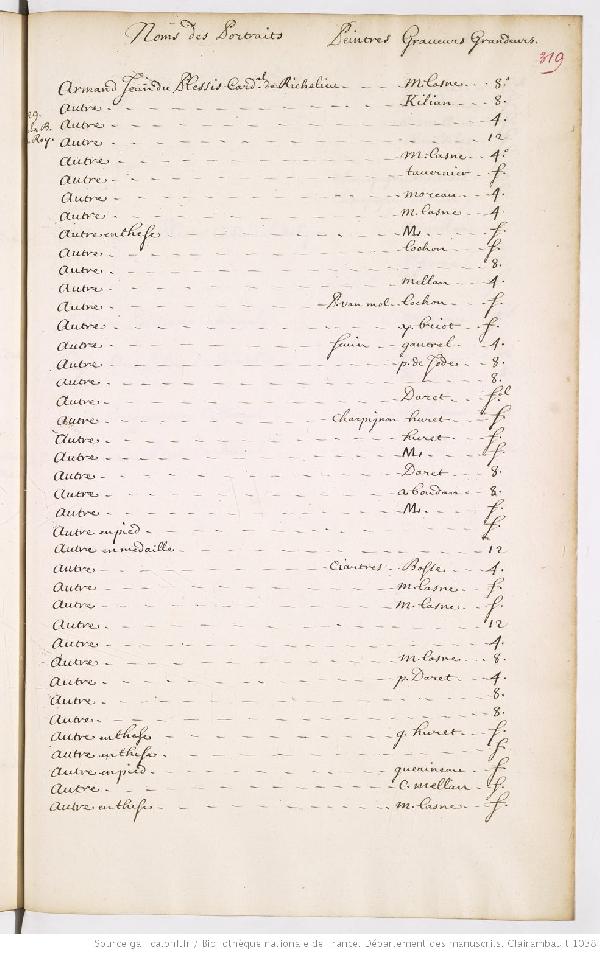 Noms des Portraits Peintres Graveurs Grandeurs.
319
Armand Jean du Plessis Card.al de Richelieu - m. Lasne - 8.o
Autre - Kilian - 8.
Autre - 4.
Autre - 12
Autre - m. Lasne - 4.o
Autre - tavernier - f.
Autre - moreau - 4.
Autre - m. Lasne - 4.
Autre en these - M. - f.
Autre - Lochon - f.
Autre - 8.
Autre - mellan - 4.
Autre - P. van mol - Lochon - f.
Autre - briot - f.
Autre - ganerel - 4.
Autre - p. de Jode - 8.
Autre - 8.
Autre - Daret - f.
Autre - Charpignon huret - f.
Autre - huret - f.
Autre - M. - f.
Autre - Daret - 8.
Autre - a. boudan - 8.
Autre - M. - f.
Autre en pied - f.
Autre en medaille - 12
Autre - Ciartres - Bosse - 4.
Autre - m. Lasne - f.
Autre - m. Lasne - f.
Autre - 12
Autre - 4.
Autre - m. Lasne - 8.
Autre - p. Daret - 4.
Autre - 8.
Autre - 8.
Autre en these - g. huret - f.
Autre en these - f.
Autre en pied - f.
Autre - C. mellan - f.
Autre en these - m. Lasne - f.
Source gallica.bnf.fr / Bibliothèque nationale de France. Département des manuscrits. Clairambault 1038